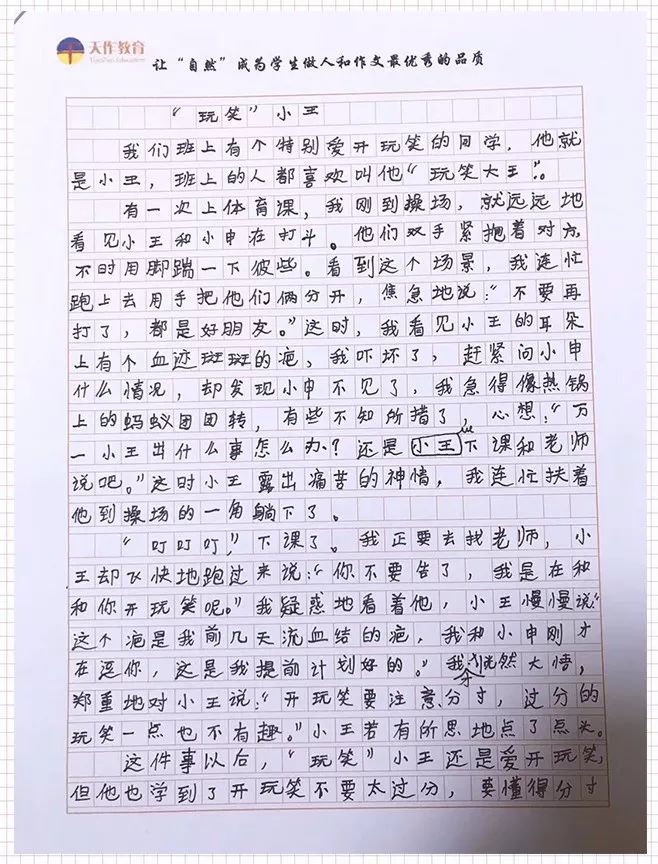 天作教育
TianZuo Education
让“自然”成为学生做人和作文最优秀的品质
“玩笑”小王
我们班上有个特别爱开玩笑的同学，他就
是小王，班上的人都喜欢叫他“玩笑大王”。
有一次上体育课，我刚到操场，就远远地
看见小王和小申在打斗。他们双手紧抱着对方，
不时用脚踹一下彼些。看到这个场景，我连忙
跑上去用手把他们俩分开，焦急地说：“不要再
打了，都是好朋友。”这时，我看见小王的耳朵
上有个血迹斑斑的疤，我吓坏了，赶紧问小申
什么情况，却发现小申不见了，我急得像热锅
上的蚂蚁团团转，有些不知所措了，心想：“万
一小王出什么事怎么办？还是小王下课和老师
说吧。”这时小王露出痛苦的神情，我连忙扶着
他到操场的一角躺下了。
“叮叮叮”，下课了。我正要去找老师，小
王却飞快地跑过来说：“你不要告了，我是在和
和你开玩笑呢。”我疑惑地看着他，小王慢慢说“
这个疤是我前几天流血结的疤，我和小申刚才
在逗你，这是我提前计划好的。”我才恍然大悟，
郑重地对小王说：“开玩笑要注意分寸，过分的
玩笑一点也不有趣。”小王若有所思地点了点头。
这件事以后，“玩笑”小王还是爱开玩笑，
但他也学到了开玩笑不要太过分，要懂得分寸